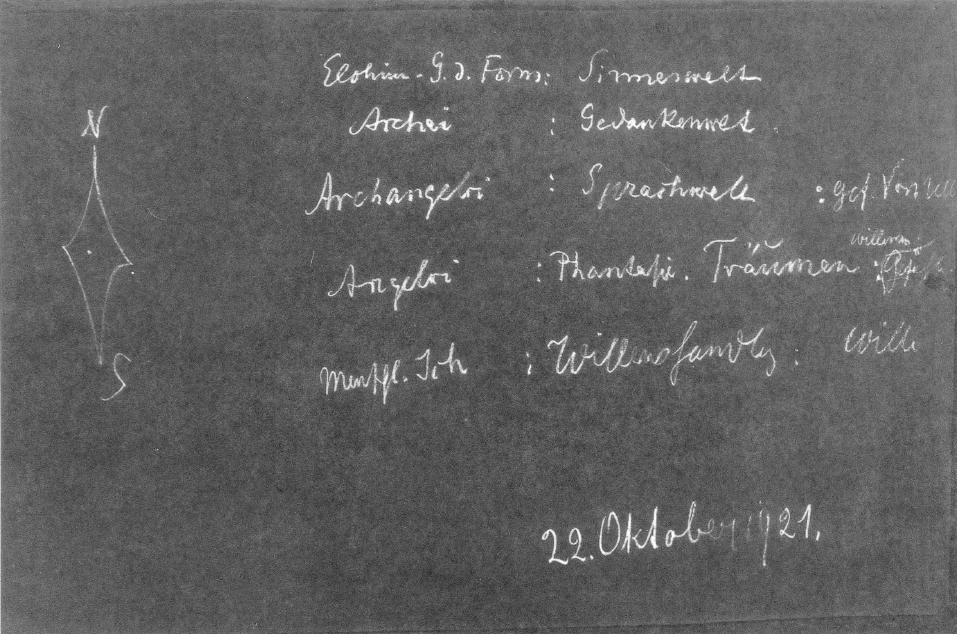 N
S
Elohim - G. d. Form: Sinneswelt
Archai : Gedankenwelt.
Archangeloi : Sprachwelt :
Angeloi : Phantasie. Träumen :
Menschl. Ich : Willenshandlg : Wille
22. Oktober 1921.